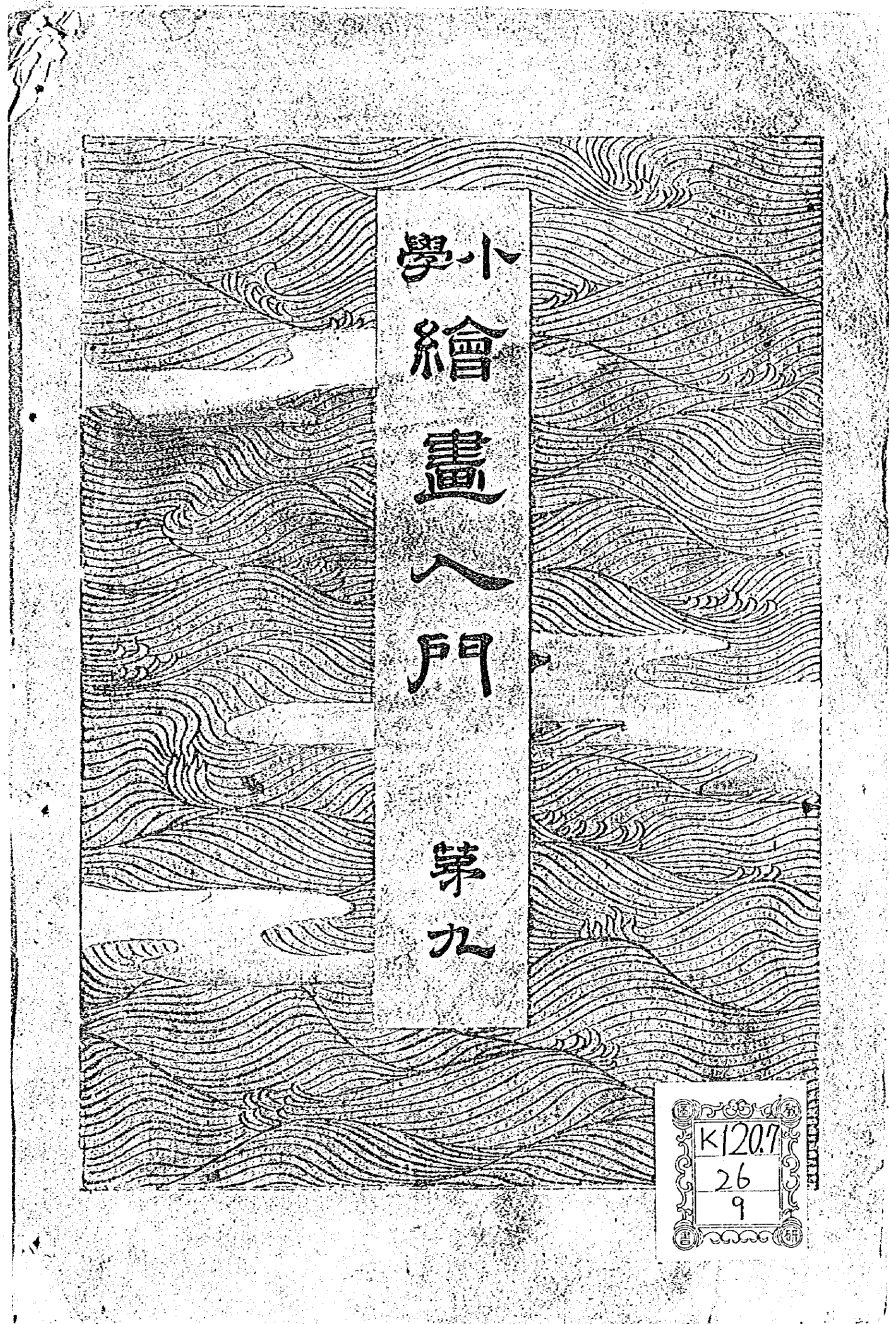 小學 繪畫入門 苐九
K120.7
26
9